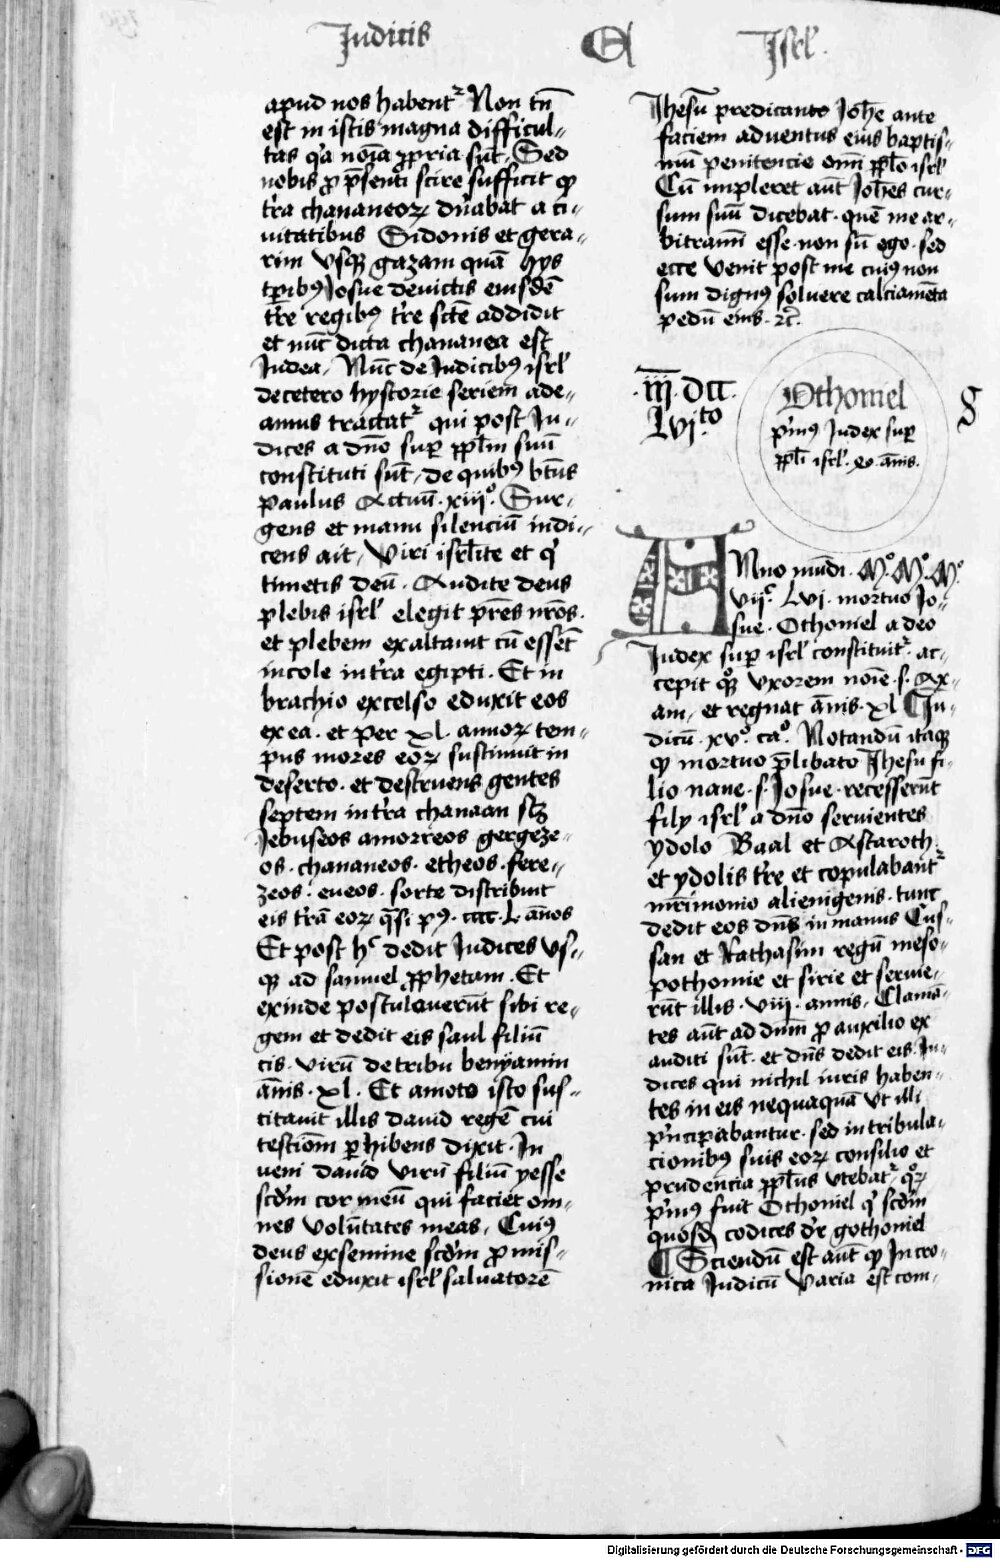 Iudicis A Isrl'.
apud nos habentr Non tn̄
est in istis magna difficul-
tas qa noīa ꝓpria sūt. Sed
nobis ꝓ p̄senti scire sufficit ꝙ
tr̄a chananeoꝝ dūabat a ci-
uitatibus Sidonis et gera-
rim vsqꝫ gazam quā hys
tꝑibꝰ Josue deuictis eiusdē
tr̄e regibꝰ tr̄e sctē addidit
et nūc dicta chananea est
Iudea. Nūc de Iudicibꝰ isrl'
decetero hystorie seriem ade-
amus tractatr qui post Iu-
dices a dn̄o suꝑ ppl̄m suū
constituti sūt, de quibꝰ bt̄us
paulus Actuū. xiiiº. Sur-
gens et manu silenciū indi-
cens ait, Viri isrl̄ite et q'
timetis deū. Audite deus
plebis isrl' elegit pr̄es nr̄os.
et plebem exaltauit cū essēt
incole in tr̄a egipti. Et in
brachio excelso eduxit eos
ex ea. et per xl. annoꝝ tem-
pus mores eoꝝ sustinuit in
deserto. et destruens gentes
septem in tr̄a chanaan sꝫ
Jebuseos amorreos gergeze-
os. chananeos. etheos. fere-
zeos. eueos. sorte distribuit
eis tr̄ā eoꝝ q̄si pꝰ. cccc. L. ān̄os
Et post hc dedit Iudices vs-
qꝫ ad samuel ꝓphetam. Et
exinde postulauerūt sibi re-
gem et dedit eis saul filiū
cis. virū de tribu benyamin
ān̄is. xl. Et amoto isto sus-
citauit illis dauid regē cui
testiōm ꝑhibens dixit. In
ueni dauid virū filiū yesse
scd̄m cor meū qui faciet om-
nes volūtates meas. Cuiꝰ
deus ex semine scd̄m ꝓmis-
sionē eduxit isrl' saluatorē
Ihesū predicante Joh̄e ante
faciem aduentus eius baptis-
mū penitencie omī ppl̄o isrl'
Cū impleret aūt Joh̄es cur-
sum suū dicebat. quē me ar-
bitramī esse. non sū ego. sed
ecce venit post me cuiꝰ non
sum dignꝰ soluere calciamēta
pedū eius. ⁊c̄.
.iii. dcc.
Lvi.to
Othoniel
p'mꝰ Iudex suꝑ
ppl̄i isrl'. xl. ān̄is.
Anno mūdi. Mº. Mº. Mº
viic. Lvi. mortuo Jo-
sue. Othoniel a deo
Iudex suꝑ isrl' constituitr. ac-
cepit qꝫ vxorem noīe. s. Ax-
am, et regnat ān̄is. xl ¶ Iu-
dicū. xvº. caº. Notandū itaqꝫ
ꝙ mortuo p̄libato Ihesu fi-
lio naue. s. Josue. recesserūt
filÿ isrl' a dn̄o seruientes
ydolo Baal et Astaroth
et ydolis tr̄e et copulabantr
mr̄imonio alienigenis. tunc
dedit eos dn̄s in manus Cus-
san et Rathasim regū meso-
pothomie et sirie et seruie-
rūt illis. viii. annis. Clamā-
tes aūt ad dn̄m ꝓ auxilio ex
auditi sūt. et dn̄s dedit eis. Iu-
dices qui nichil iuris haben-
tes in eis nequaquā vt illi
p'ncipabantur. sed in tribula-
cionibꝰ suis eoꝝ consilio et
prudencia ppl̄us vtebatr. qoꝝ
p'mꝰ fuit Othoniel q' scd̄m
quosd codices dr̄ gothoniel
¶ Sciendū est aūt ꝙ In cro-
nica Iudicū varia est com-
Digitalisierung gefördert durch die Deutsche Forschungsgemeinschaft - DFG